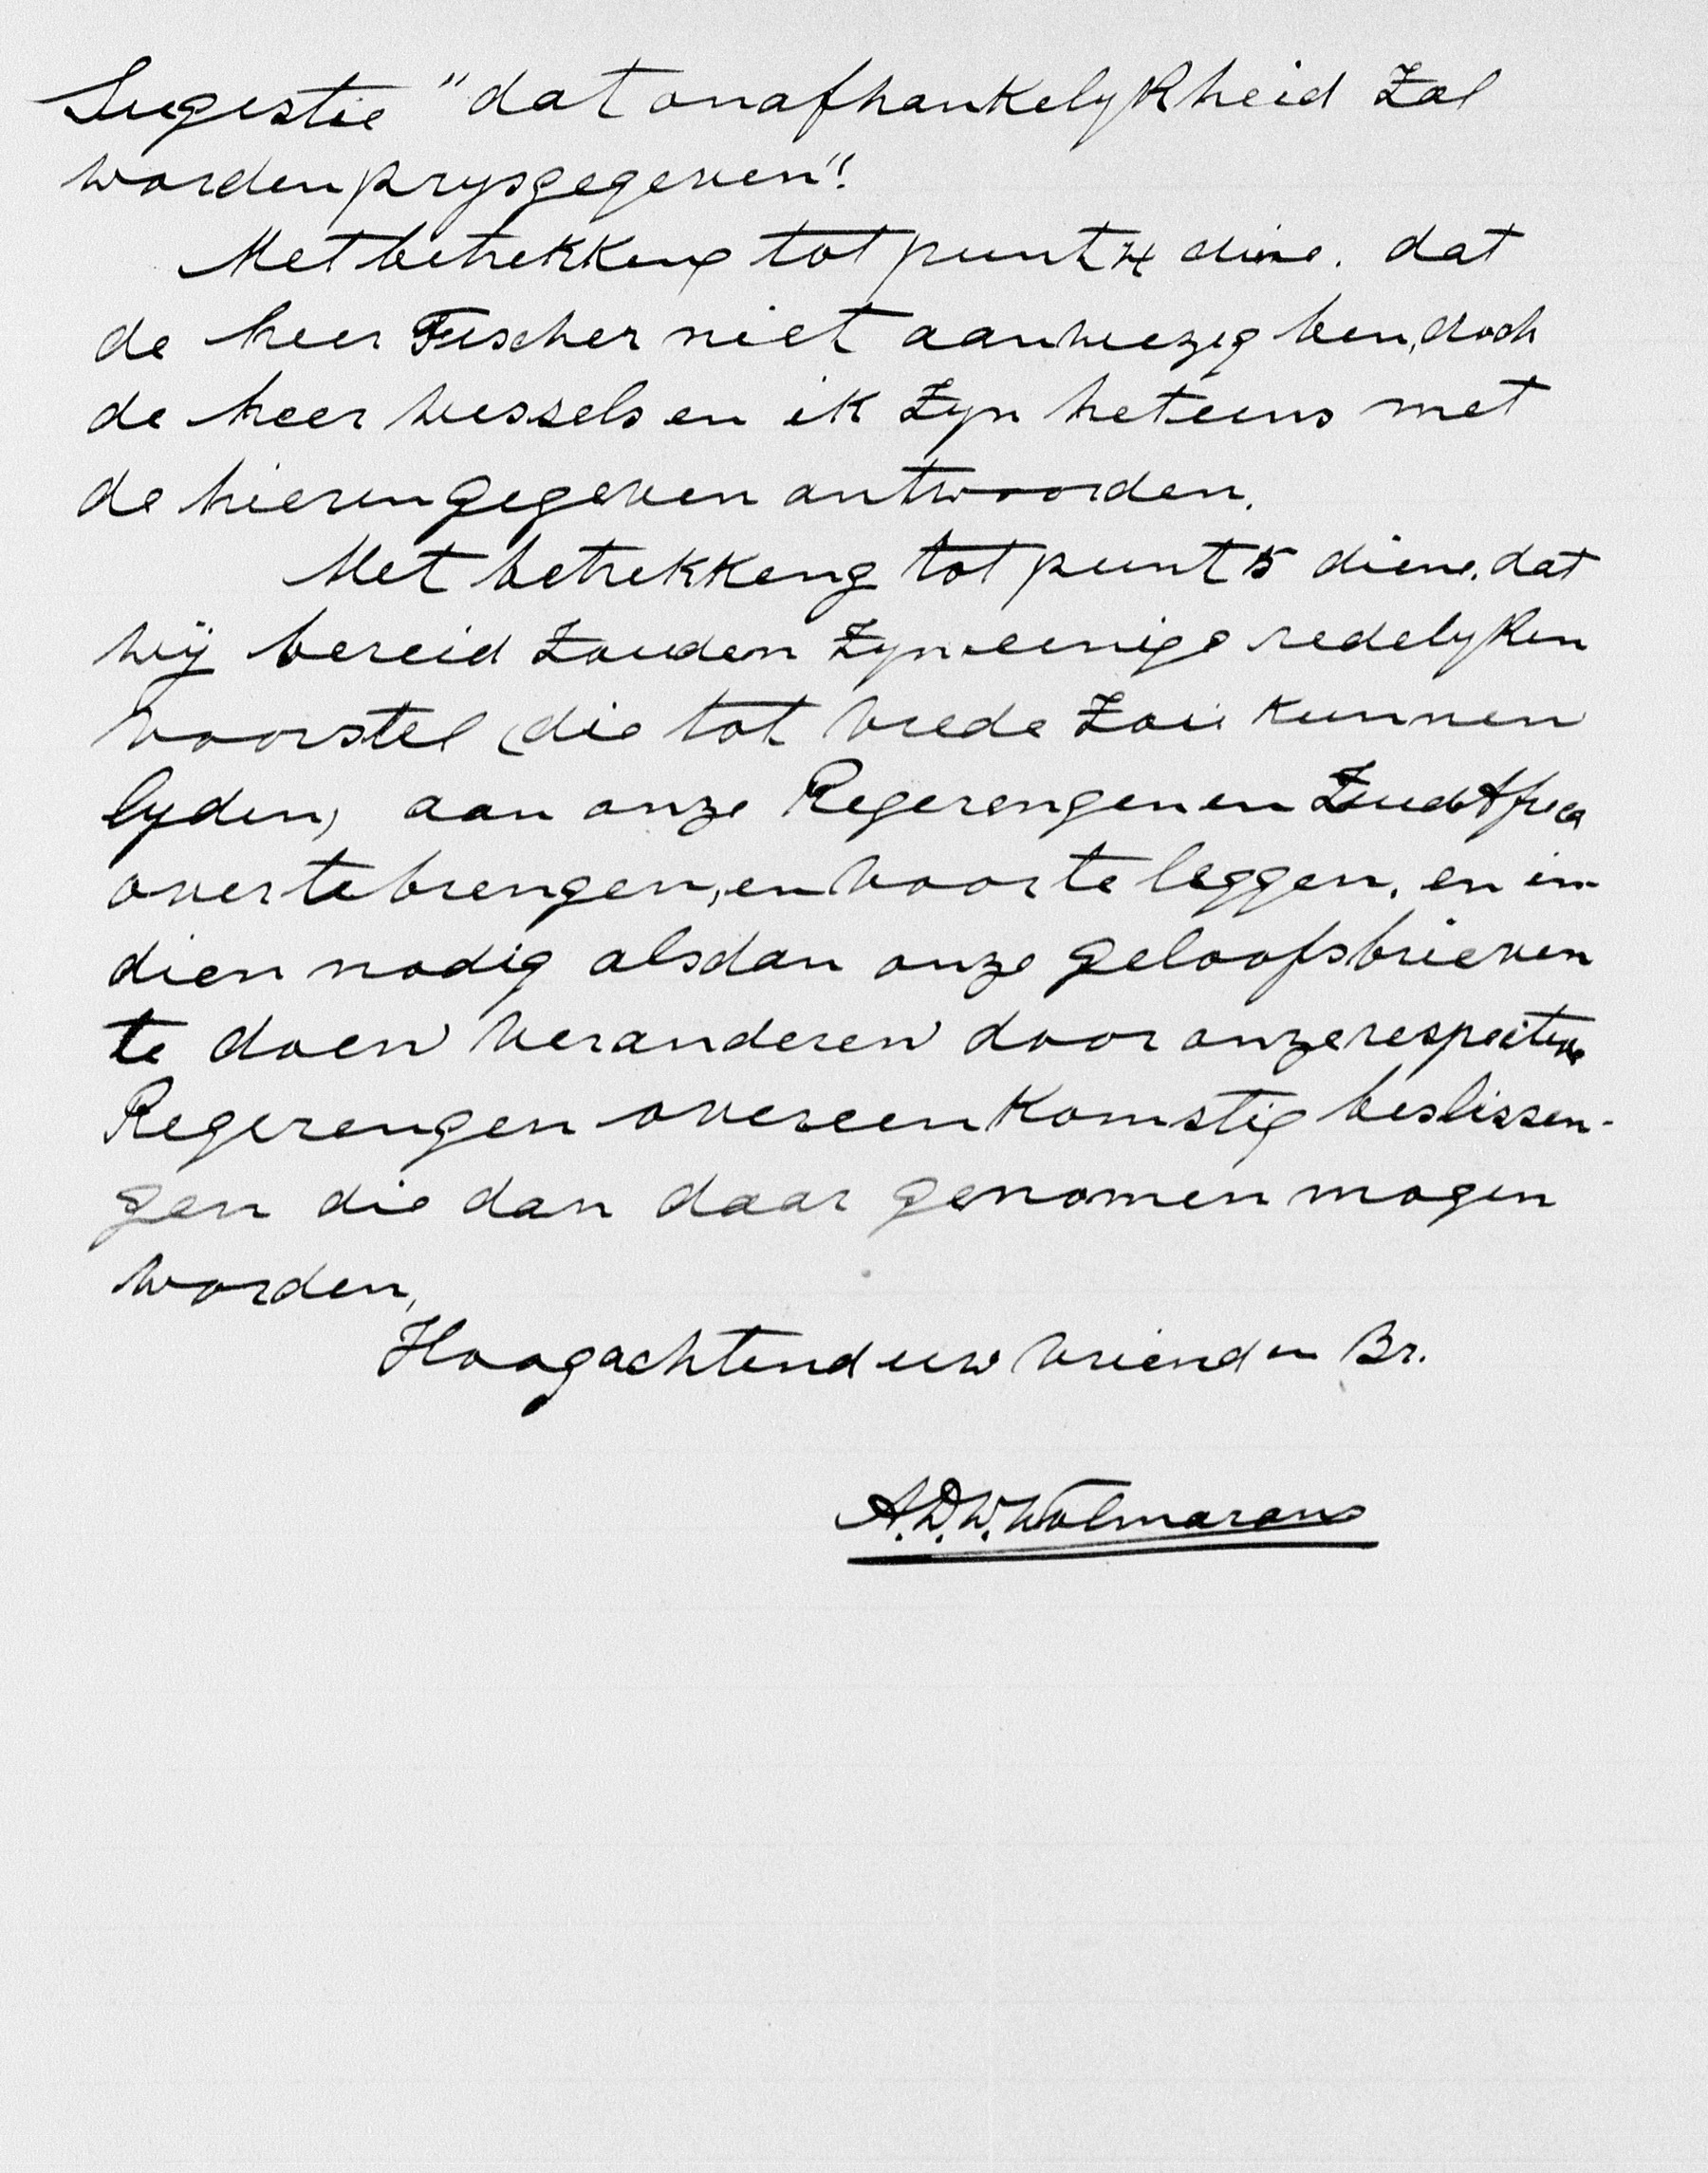 Sugestie "dat onafhankelykheid Zal
worden prysgegeven".
Met betrekking tot punt 4 diene. dat
de heer Fischer niet aanwezig ben, doch
de heer Wessels en ik Zyn het eens met
de hierin gegeven antwoorden.
Met betrekking tot punt 5 diene. dat
wij bereid Zouden Zyn eenige redelyken
voorstel (die tot vrede Zou kunnen
lyden, aan onze Regeringen en Zuid Africa
over te brengen, en voor te leggen, en in-
dien nodig alsdan onze geloofsbrieven
te doen veranderen door onze respective
Regeringen overeenkomstig beslissen-
gen die dan daar genomen mogen
worden,
Hoogachtend uw vriend en Br.
A.D.W. Wolmarans